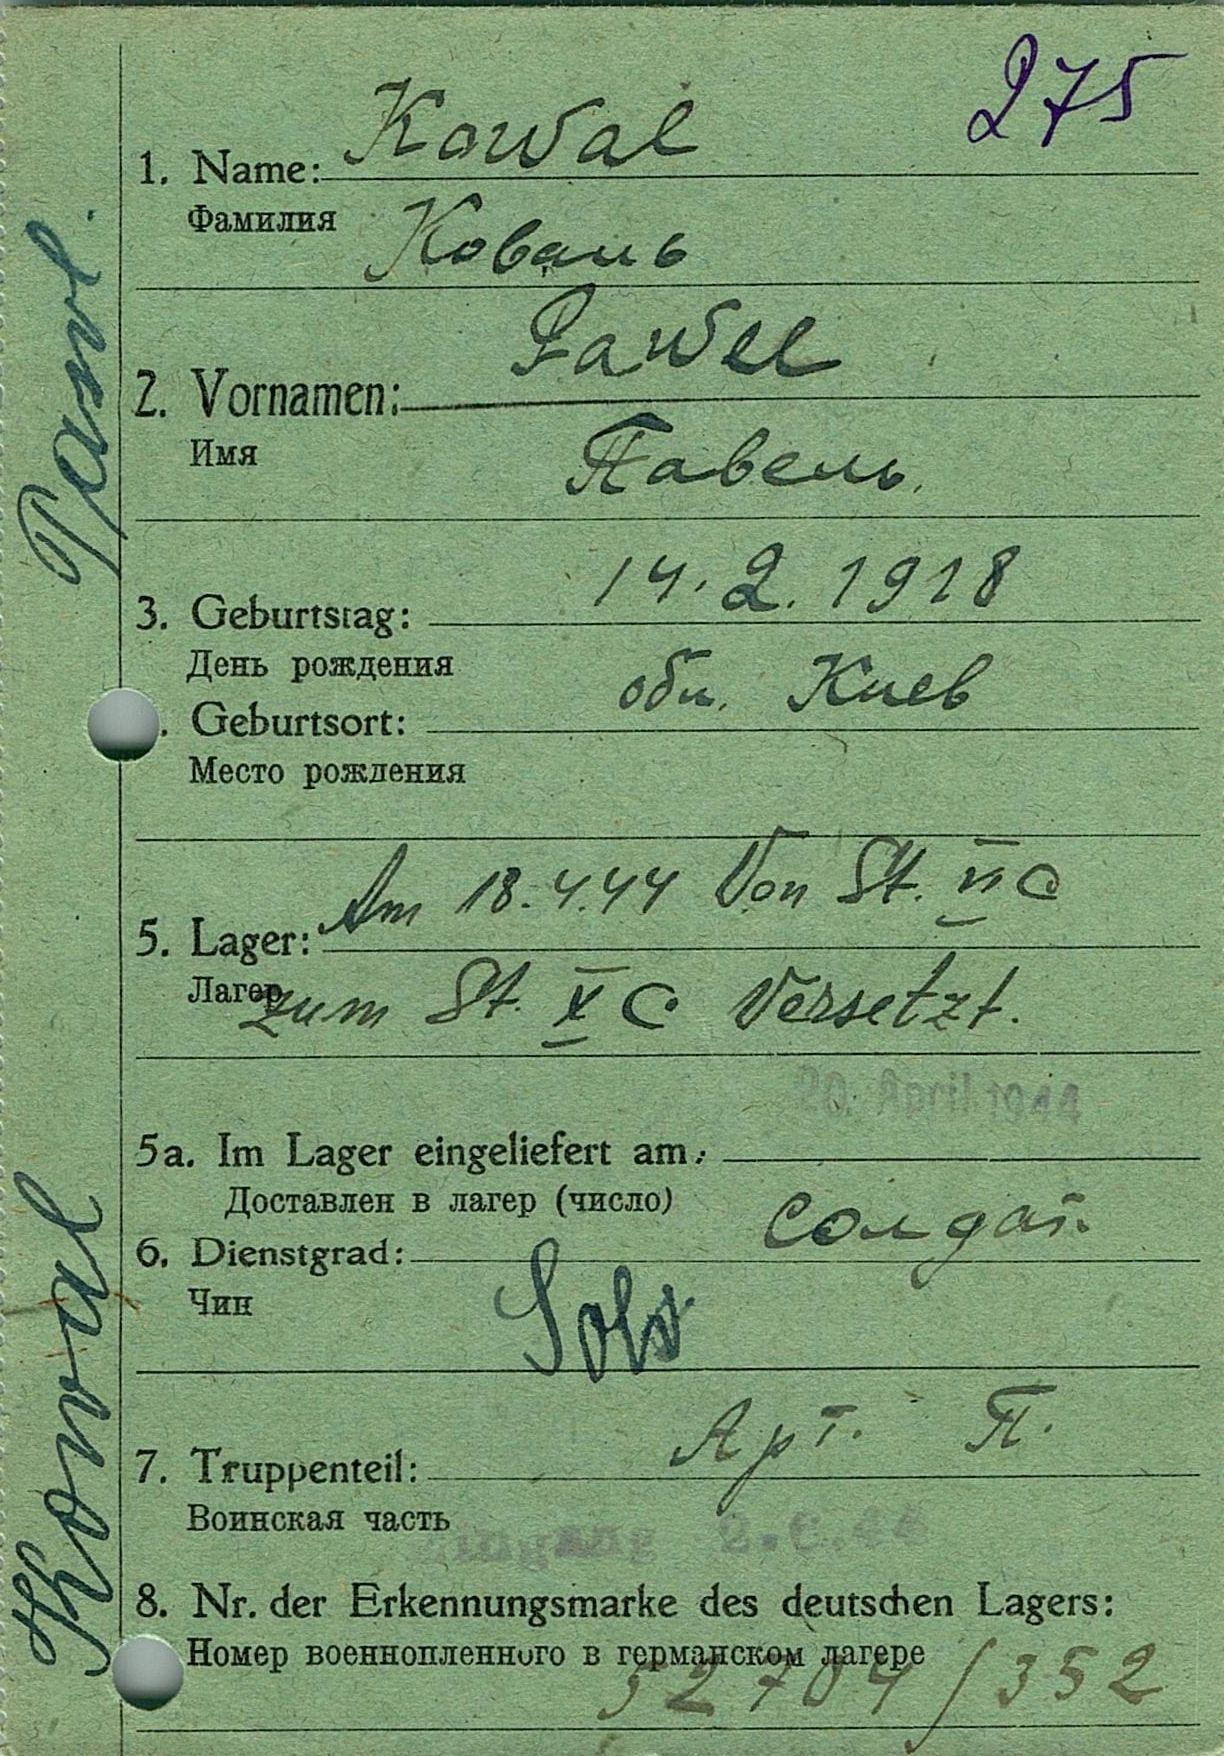 275
1. Name: Kowal
Фамилия
Коваль
2. Vornamen: Pawel
Имя
Павель.
3. Geburtstag: 14.2.1918
День рождения
. Geburtsort: обл. Киев
Место рождения
5. Lager: Am 18.4.44 Von St. VI C
Лагер zum St. X C Versetzt.
5a. Im Lager eingeliefert am:
Доставлен в лагер (число)
6. Dienstgrad: солдат.
Чин
7. Truppenteil: Арт. П.
Воинская часть
Eingang
8. Nr. der Erkennungsmarke des deutschen Lagers:
Номер военнопленного в германском лагере
52704/352
Kowal Pawl.